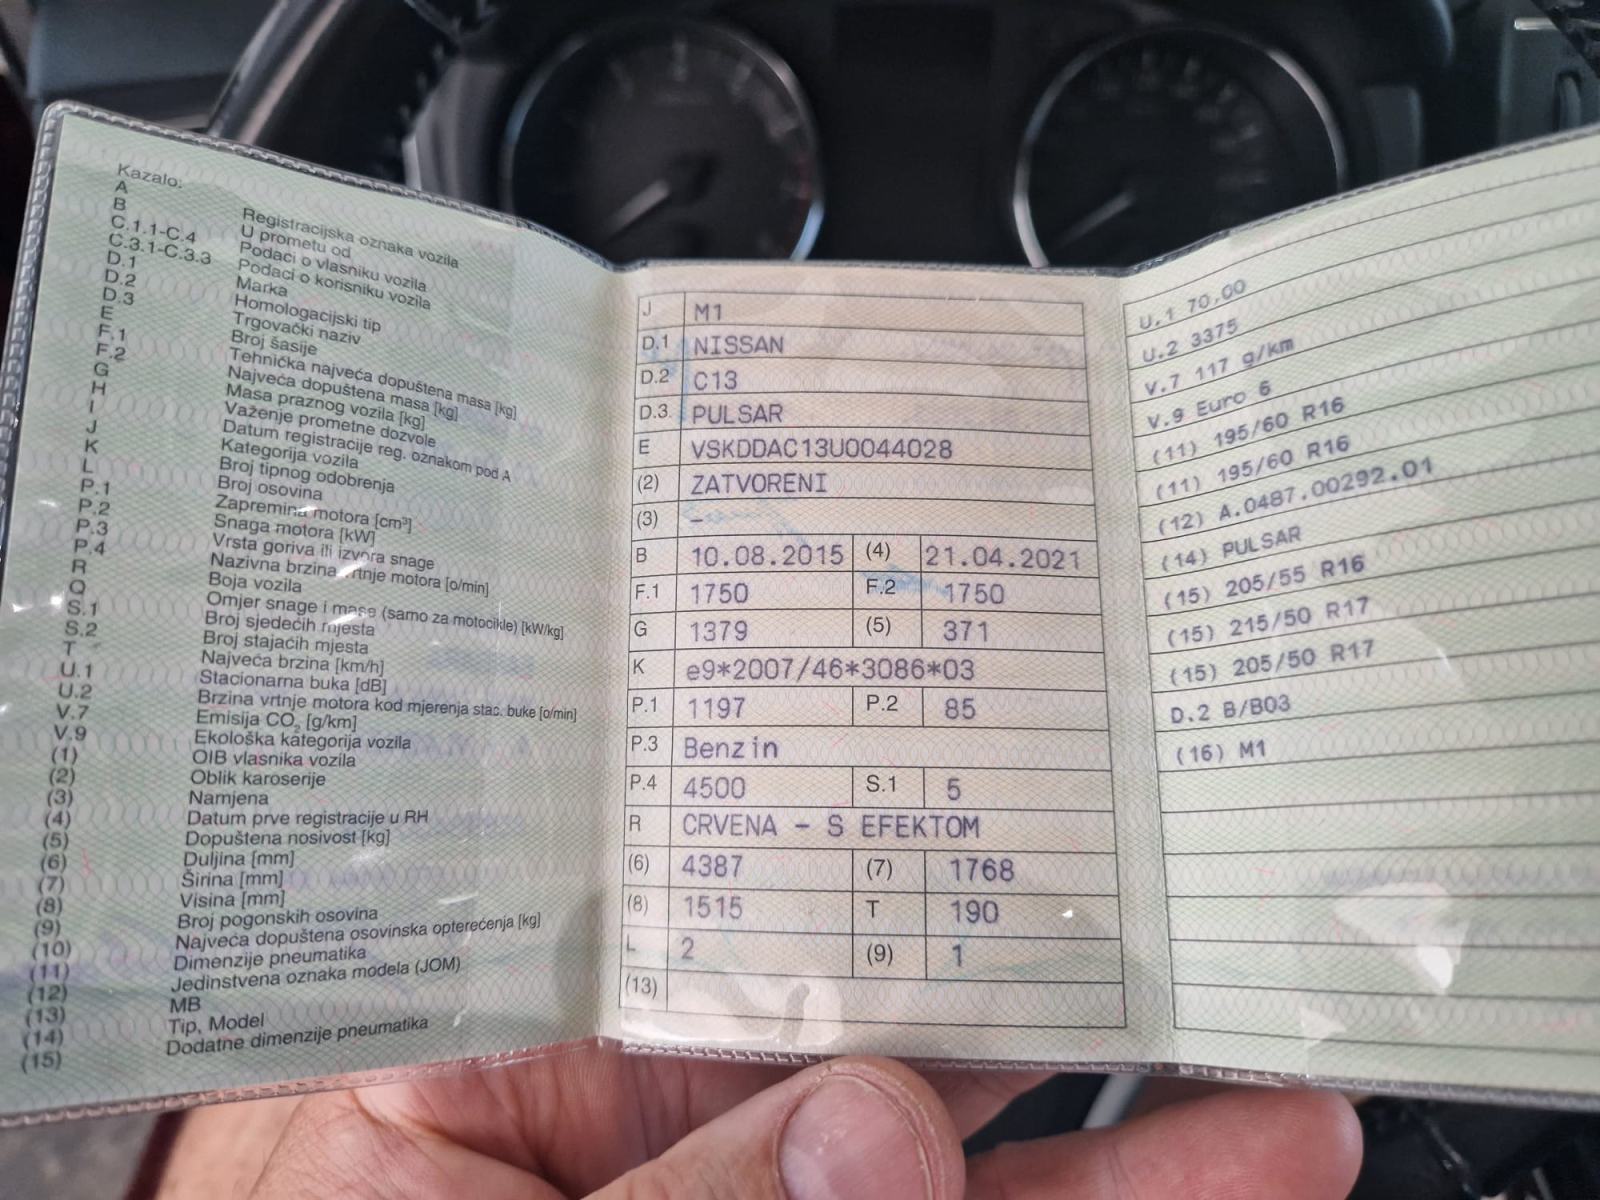 Kazalo:
A Registracijska oznaka vozila
B U prometu od
C.1.1-C.4 Podaci o vlasniku vozila
C.3.1-C.3.3 Podaci o korisniku vozila
D.1 Marka
D.2 Homologacijski tip
D.3 Trgovački naziv
E Broj šasije
F.1 Tehnička najveća dopuštena masa [kg]
F.2 Najveća dopuštena masa [kg]
G Masa praznog vozila [kg]
H Važenje prometne dozvole
I Datum registracije reg. oznakom pod A
J Kategorija vozila
K Broj tipnog odobrenja
L Broj osovina
P.1 Zapremina motora [cm³]
P.2 Snaga motora [kW]
P.3 Vrsta goriva ili izvora snage
P.4 Nazivna brzina vrtnje motora [o/min]
R Boja vozila
Q Omjer snage i mase (samo za motocikle) [kW/kg]
S.1 Broj sjedećih mjesta
S.2 Broj stajaćih mjesta
T Najveća brzina [km/h]
U.1 Stacionarna buka [dB]
U.2 Brzina vrtnje motora kod mjerenja stac. buke [o/min]
V.7 Emisija CO₂ [g/km]
V.9 Ekološka kategorija vozila
(1) OIB vlasnika vozila
(2) Oblik karoserije
(3) Namjena
(4) Datum prve registracije u RH
(5) Dopuštena nosivost [kg]
(6) Duljina [mm]
(7) Širina [mm]
(8) Visina [mm]
(9) Broj pogonskih osovina
(10) Najveća dopuštena osovinska opterećenja [kg]
(11) Dimenzije pneumatika
(12) Jedinstvena oznaka modela (JOM)
(13) MB
(14) Tip, Model
(15) Dodatne dimenzije pneumatika
J M1
D.1 NISSAN
D.2 C13
D.3. PULSAR
E VSKDDAC13U0044028
(2) ZATVORENI
(3) –
B 10.08.2015 (4) 21.04.2021
F.1 1750 F.2 1750
G 1379 (5) 371
K e9*2007/46*3086*03
P.1 1197 P.2 85
P.3 Benzin
P.4 4500 S.1 5
R CRVENA - S EFEKTOM
(6) 4387 (7) 1768
(8) 1515 T 190
L 2 (9) 1
(13)
U.1 70,00
U.2 3375
V.7 117 g/km
V.9 Euro 6
(11) 195/60 R16
(11) 195/60 R16
(12) A.0487.00292.01
(14) PULSAR
(15) 205/55 R16
(15) 215/50 R17
(15) 205/50 R17
D.2 B/B03
(16) M1